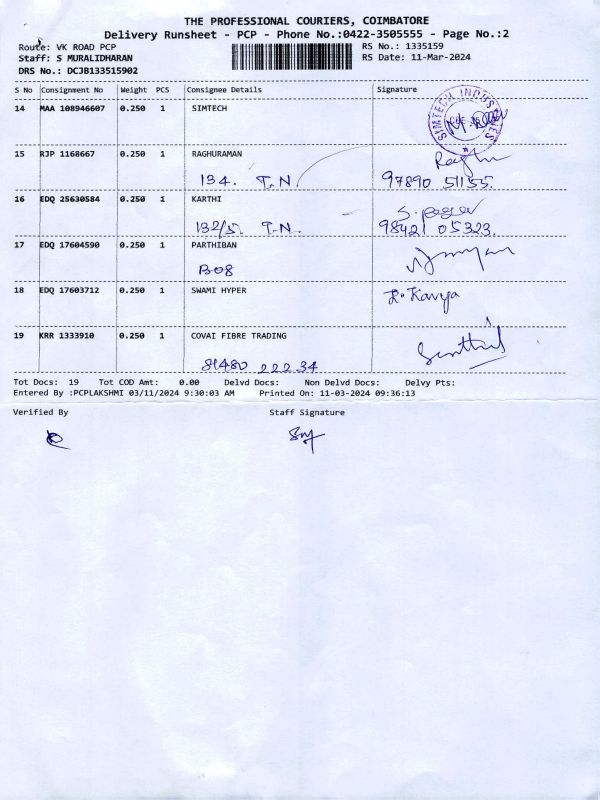 THE PROFESSIONAL COURIERS, COIMBATORE
Delivery Runsheet - PCP - Phone No.:0422-3505555 - Page No.:2
Route: VK ROAD PCP
RS No.: 1335159
Staff: S MURALIDHARAN
RS Date: 11-Mar-2024
DRS No.: DCJB133515902
S No Consignment No Weight PCS Consignee Details Signature
14 MAA 108946607 0.250 1 SIMTECH
SIMTECH INDUSTRIES
15 RJP 1168667 0.250 1 RAGHURAMAN
134. T.N. 97890 51155.
16 EDQ 25630584 0.250 1 KARTHI
132/5. T.N. 98421 05323.
17 EDQ 17604590 0.250 1 PARTHIBAN
B08
18 EDQ 17603712 0.250 1 SWAMI HYPER
R. Kavya
19 KRR 1333910 0.250 1 COVAI FIBRE TRADING
81480 22234
Senthil
Tot Docs: 19 Tot COD Amt: 0.00 Delvd Docs: Non Delvd Docs: Delvy Pts:
Entered By :PCPLAKSHMI 03/11/2024 9:30:03 AM Printed On: 11-03-2024 09:36:13
Verified By Staff Signature